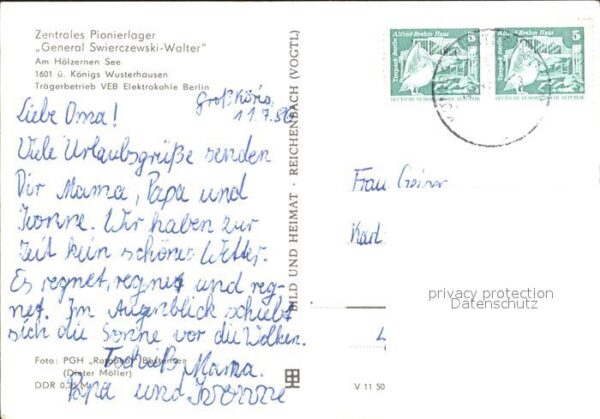 Zentrales Pionierlager
„General Swierczewski-Walter"
Am Hölzernen See
1601 ü. Königs Wusterhausen
Trägerbetrieb VEB Elektrokohle Berlin
Großköris,
11.7.86
Liebe Oma!
Viele Urlaubsgrüße senden
Dir Mama, Papa und
Ivonne. Wir haben zur
Zeit kein schönes Wetter.
Es regnet, regnet und reg-
net. Im Augenblick schiebt
sich die Sonne vor die Wolken.
Tschüß Mama.
Papa und Ivonne
Foto: PGH
(Dieter Möller)
DDR
BILD UND HEIMAT · REICHENBACH (VOGTL)
V 11 50
Tierpark Berlin
Alfred-Brehm-Haus
5
DEUTSCHE DEMOKRATISCHE REPUBLIK
Tierpark Berlin
Alfred-Brehm-Haus
5
DEUTSCHE DEMOKRATISCHE REPUBLIK
Frau
Karl
4
privacy protection
Datenschutz